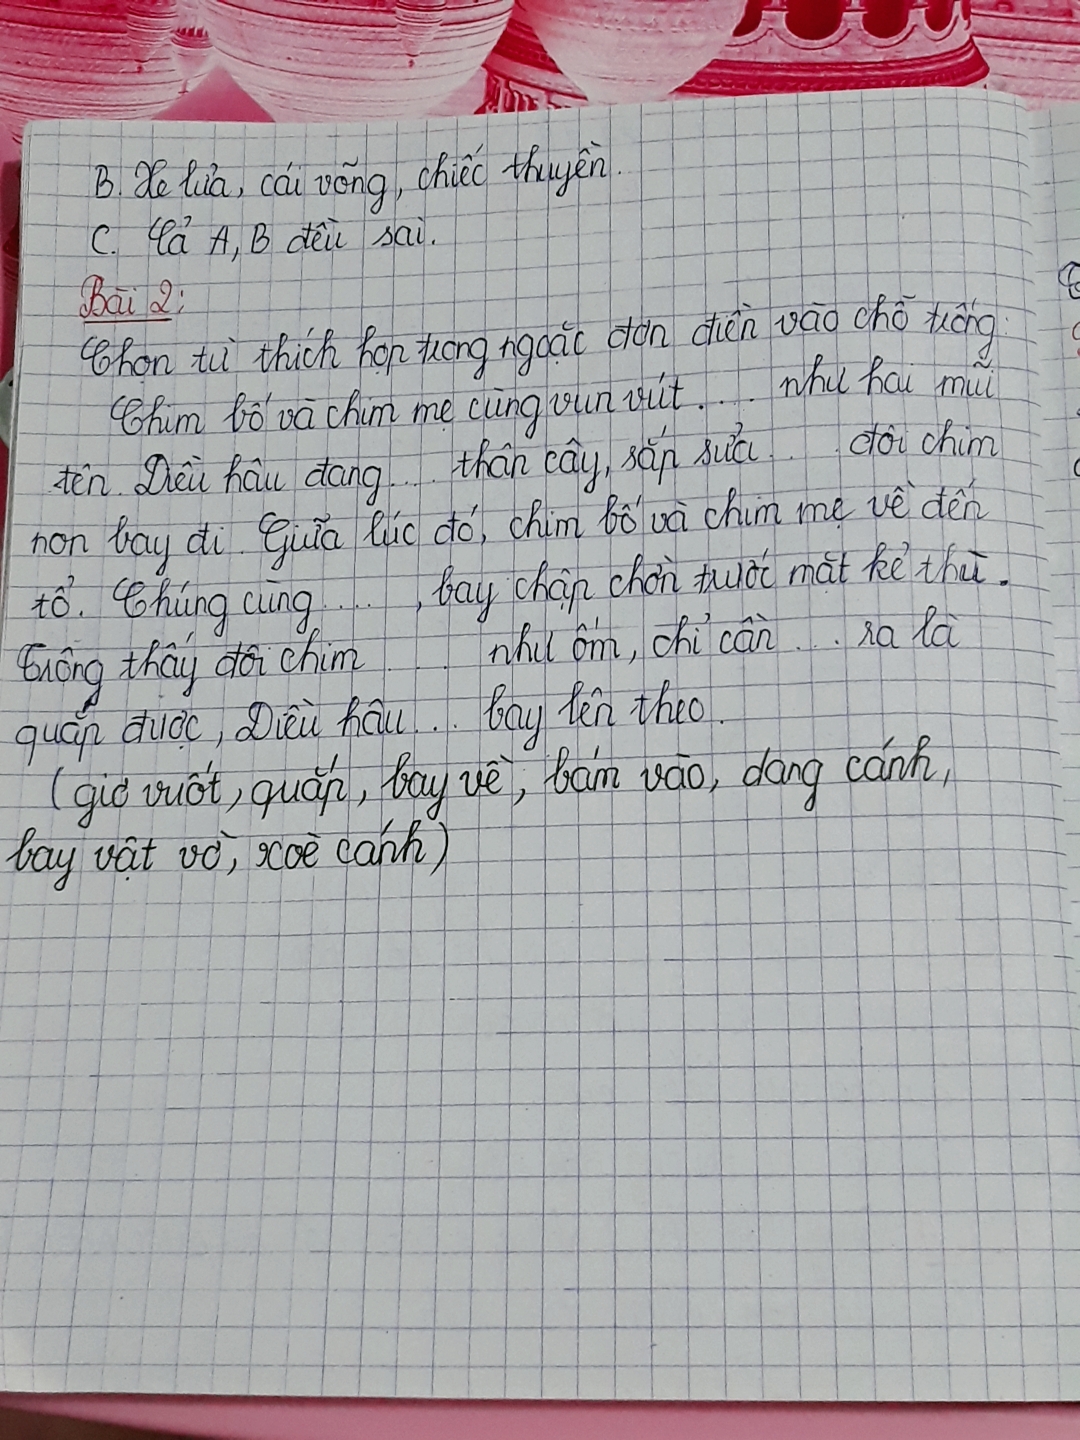 B. Xe lửa, cái võng, chiếc thuyền.
C. Cả A, B đều sai.
Bài 2:
Chọn từ thích hợp trong ngoặc đơn điền vào chỗ trống:
Chim bố và chim mẹ cùng vun vút.... như hai mũi
tên. Diều hâu đang.... thân cây, sắp sửa... đôi chim
non bay đi. Giữa lúc đó, chim bố và chim mẹ về đến
tổ. Chúng cùng....., bay chập chờn trước mặt kẻ thù.
Trông thấy đôi chim .... như ốm, chỉ cần ... ra là
quắp được, Diều hâu... bay lên theo.
(giơ vuốt, quắp, bay về, bám vào, dang cánh,
bay vật vờ, xoè cánh)